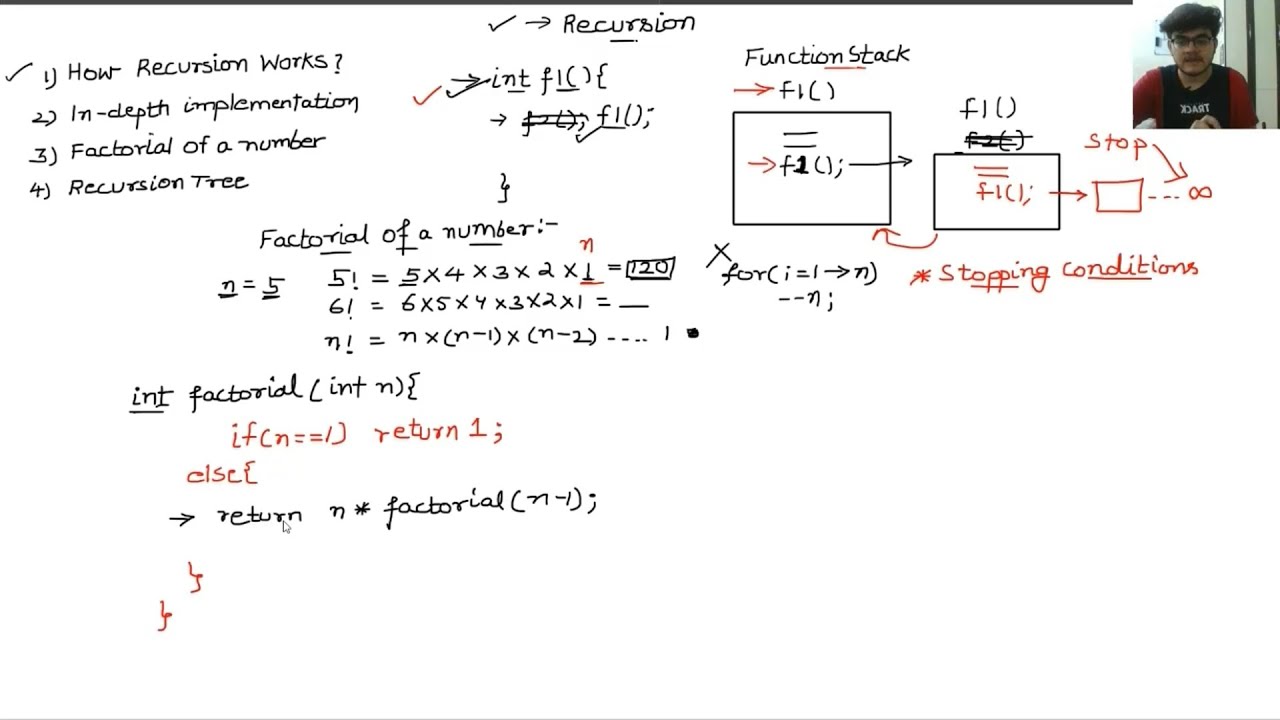 ✓ → Recursion
✓ 1) How Recursion Works?
2) In-depth implementation
3) Factorial of a number
4) Recursion Tree
→ int f1() {
→ f2(); f1();
}
Function Stack
→ f1()
→ f1(); →
f1()
f2()
f1(); →
Stop
---- ∞
* Stopping conditions
for(i=1→n)
--n;
Factorial of a number:-
n = 5
n
5! = 5×4×3×2×1 = 120
6! = 6×5×4×3×2×1 = __
n! = n×(n-1)×(n-2) .... 1
int factorial(int n){
if(n==1) return 1;
else{
→ return n* factorial(n-1);
}
}
TRACK